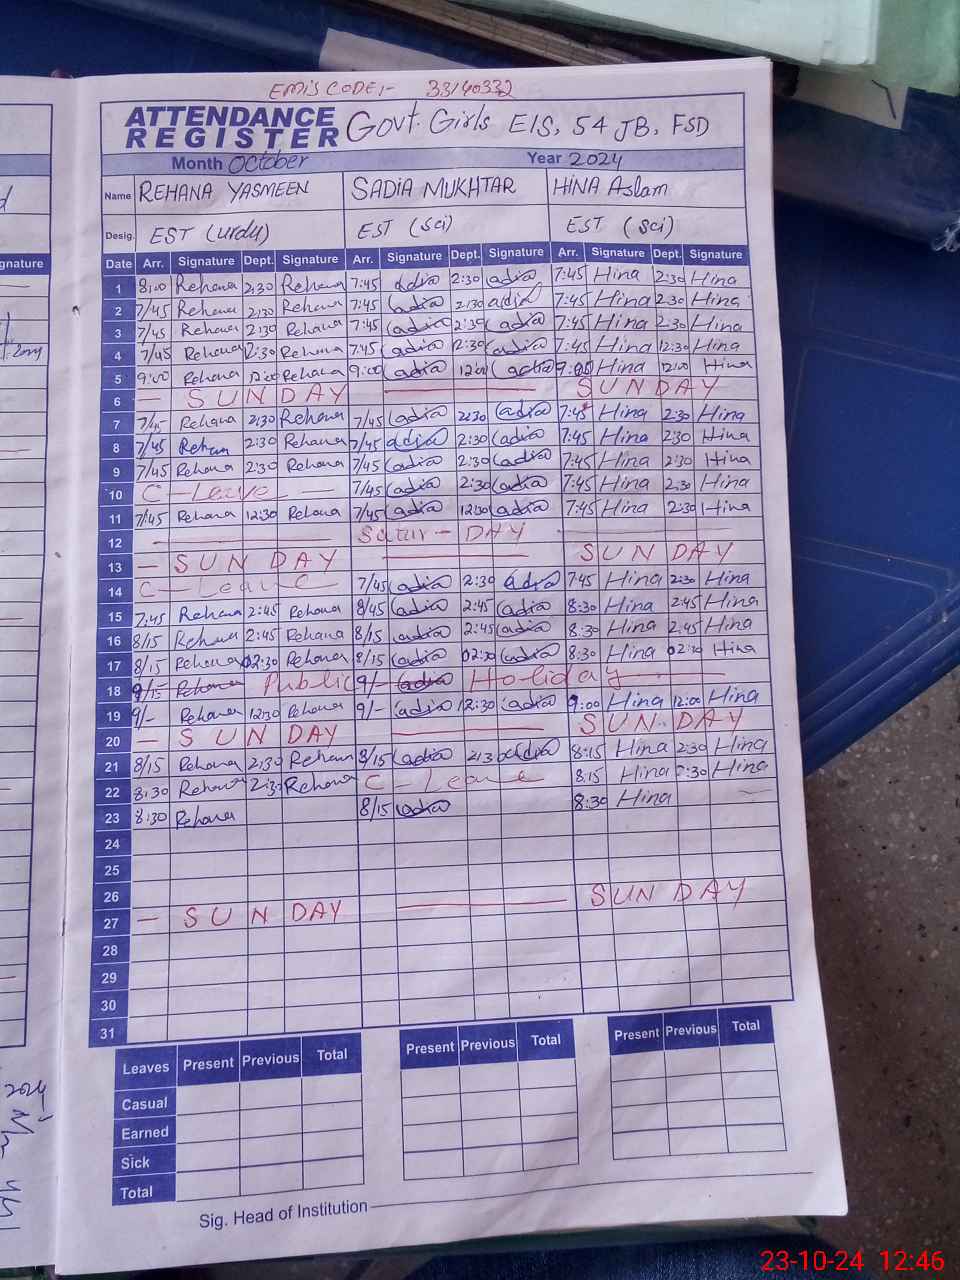 EMIS CODE:- 33140332
ATTENDANCE REGISTER Govt. Girls E/S, 54 JB, FSD
Month October Year 2024
Name REHANA YASMEEN SADIA MUKHTAR HINA Aslam
Desig. EST (urdu) EST (sci) EST (sci)
Date Arr. Signature Dept. Signature Arr. Signature Dept. Signature Arr. Signature Dept. Signature
1 8:00 Rehana 2:30 Rehana 7:45 Sadia 2:30 Sadia 7:45 Hina 2:30 Hina
2 7/45 Rehana 2:30 Rehana 7:45 Sadia 2:30 Sadia 7:45 Hina 2:30 Hina
3 7/45 Rehana 2:30 Rehana 7:45 Sadia 2:30 Sadia 7:45 Hina 2:30 Hina
4 7/45 Rehana 12:30 Rehana 7:45 Sadia 12:30 Sadia 7:45 Hina 12:30 Hina
5 9:00 Rehana 12:00 Rehana 9:00 Sadia 12:00 Sadia 9:00 Hina 12:00 Hina
6 — SUNDAY — SUNDAY
7 7/45 Rehana 2:30 Rehana 7/45 Sadia 2:30 Sadia 7:45 Hina 2:30 Hina
8 7/45 Rehana 2:30 Rehana 7/45 Sadia 2:30 Sadia 7:45 Hina 2:30 Hina
9 7/45 Rehana 2:30 Rehana 7/45 Sadia 2:30 Sadia 7:45 Hina 2:30 Hina
10 C - Leave — 7/45 Sadia 2:30 Sadia 7:45 Hina 2:30 Hina
11 7/45 Rehana 12:30 Rehana 7/45 Sadia 12:30 Sadia 7:45 Hina 2:30 Hina
12 — Satur - DAY —
13 — SUNDAY — SUNDAY
14 C - Leave 7/45 Sadia 2:30 Sadia 7:45 Hina 2:30 Hina
15 7:45 Rehana 2:45 Rehana 8/45 Sadia 2:45 Sadia 8:30 Hina 2:45 Hina
16 8/15 Rehana 2:45 Rehana 8/15 Sadia 2:45 Sadia 8:30 Hina 2:45 Hina
17 8/15 Rehana 02:30 Rehana 8/15 Sadia 02:30 Sadia 8:30 Hina 02:30 Hina
18 9/15 Rehana Public 9/- Sadia Holiday —
19 9/- Rehana 12:30 Rehana 9/- Sadia 12:30 Sadia 9:00 Hina 12:00 Hina
20 — SUNDAY — SUNDAY
21 8/15 Rehana 2:30 Rehana 8/15 Sadia 2:30 Sadia 8:15 Hina 2:30 Hina
22 8:30 Rehana 2:30 Rehana C - Leave 8:15 Hina 2:30 Hina
23 8:30 Rehana 8/15 Sadia 8:30 Hina
24
25
26
27 — SUNDAY — SUNDAY
28
29
30
31
Leaves Present Previous Total Present Previous Total Present Previous Total
Casual
Earned
Sick
Total
Sig. Head of Institution
23-10-24 12:46